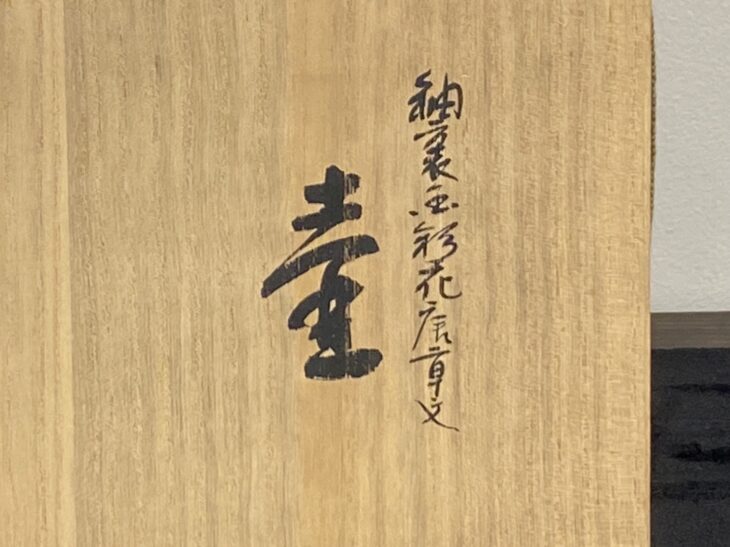 釉裏金彩花唐草文
壷